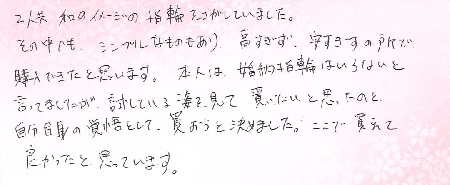 2人共 和のイメージの指輪をさがしていました。
その中でも、シンプルなものもあり、高すぎず、安すぎずの所で
購入できたと思います。本人は、婚約指輪はいらないと
言ってましたが、試している姿を見て 買いたいと思ったのと、
自分自身の覚悟として、買おうと決めました。ここで買えて
良かったと思っています。